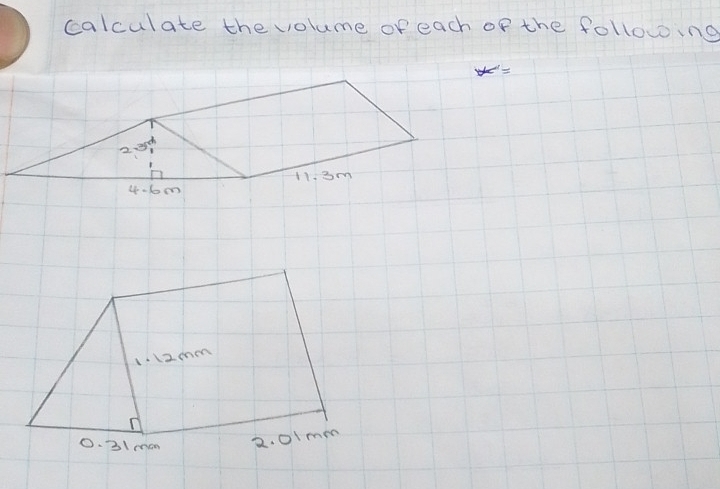 calculate the volume of each of the following
4.6m
11.3m
1.12mm
0.31mm
2.01mm